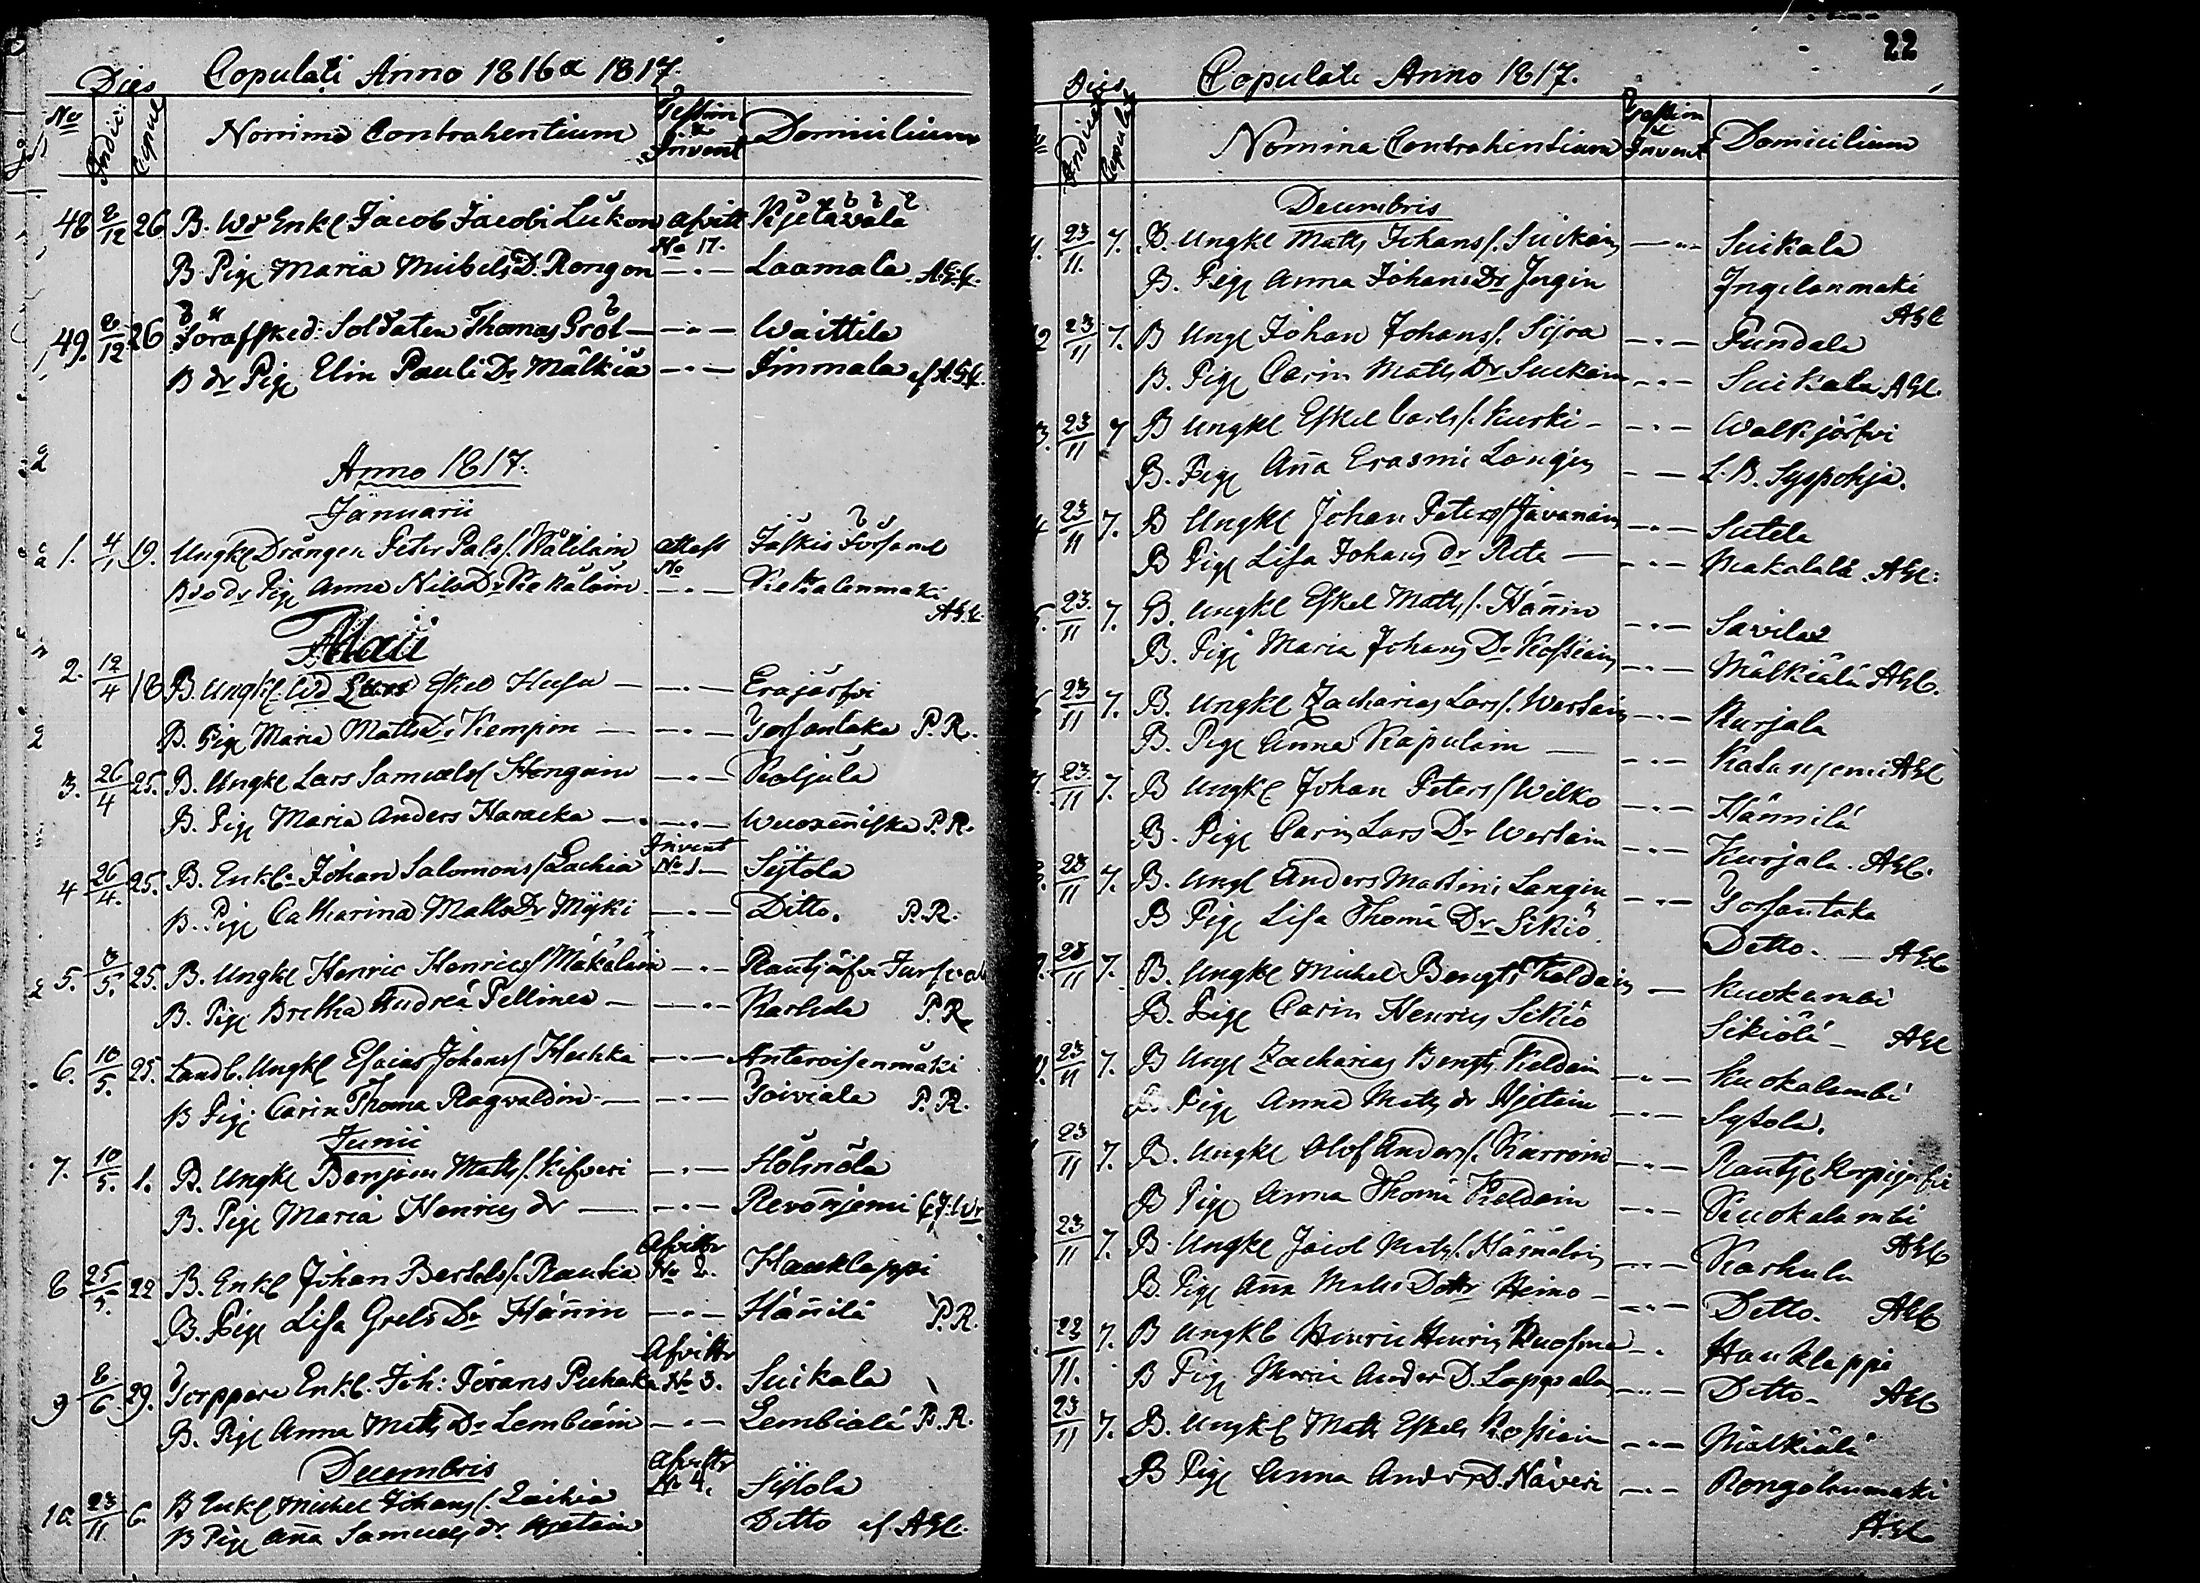 Copulati Anno 1816 a 1817.
Dies
No Indic: Copul Nomina Contrahentium Testim & Invent Domicilium
48 8/12 26 B. Wd Enkl Jacob Jacobi Lukon afvitt Kjetävälä
No 17.
B. Pige Maria Michels D. Rongon — Laamala. A.E.C.
49. 8/12 26 Förafsked: Soldaten Thomas Gröt — Waittila
B dr Pige Elin Pauli Dr Mälkiä — Immala af A.E.C.
Anno 1817.
Januarii
1. 4/1 19. Ungkl Drängen Peter Pals/. Wälilain attest Jäskis Församl
No
B dr Pige Anna Nils Dr — Kekalenmäki
A.E.C.
Maii
2. 12/4 18 B. Ungkl. Wd Eskel Husu — Erajärfvi
B. Pige Maria Matts Dr Kempin — Torsantaka P.R.
3. 26/4 25. B. Ungkl Lars Samuels/ Hongain — Koljola
B. Pige Maria Anders Haracka — Wuoxenniska P.R.
Invent
4 26/4. 25. B. Enkl. Johan Salomons/ Lachia No 1 — Sijtola
B. Pige Catharina Matts Dr Mÿki — Ditto. P.R.
5. 3/5. 25. B. Ungkl Henric Henrics/ Mäkäläin — Rautjärfvi
B. Pige Bretha Andreä Pellinen — Karhula P.R.
6. 10/5. 25. Landb. Ungkl Esaias Johans/ Huhka — Anteroisenmäki
B Pige Carin Thoma Ragvaldin — Toiviala P.R.
Junii
7. 10/5. 1. B. Ungkl Benjam Matts/. Kifveri — Hölsnöla
B. Pige Maria Henrics dr — Revonnjemi
Afvittr
8 25/5. 22 B. Enkl Johan Bertels/. Rautia No 2. Hauklappi
B. Pige Lisa Grels Dr Hännin — Hännilä P.R.
Afvittr
9 8/6. 29. Torppare Enkl. Joh: Jörans Puhaka No 3. Suikala
B. Pige Anna Matts Dr Lembiäin — Lembiälä P.R.
Decembris
Afvittr
10 23/11. 6. B Enkl Michel Johans/. Laihia No 4. Sijtola
B Pige Anna Samuels dr Hjetain Ditto af A.E.C.
22
Copulati Anno 1817.
Dies
Indic Copulat Nomina Contrahentium Testim & Invent Domicilium
Decembris
23/11. 7. B. Ungkl Matts Johans/. Suikain — Suikala
B. Pige Anna Johans Dr Ingin Ingilanmäki
A.E.C
2 23/11 7. B Ungl Johan Johans/. Sijra — Pundala
B. Pige Carin Matts Dr Suikain — Suikala A.E.C.
3. 23/11 7 B Ungkl Eskel Carls/. Kurki — Walkjärfvi
B. Pige Anna Erasmi Laigin — L. B. Syspohja.
4 23/11 7. B Ungkl Johan Peters/ Javanain — Sutela
B Pige Lisa Johans dr Rita — Makalalä A.E.C:
5. 23./11 7. B. Ungkl Eskel Matts/. Hännin — Savilax
B. Pige Maria Johans Dr Kossiain — Mälkiälä A.E.C.
23/11 7. B. Ungkl Zacharias Lars/. Wertain — Kurjala
B. Pige Anna Kapulain — A.E.C
23./11 7. B Ungkl Johan Peters/ Wilko — Hännilä
B. Pige Carin Lars Dr Wertain — Kurjala. A.E.C.
23/11 7. B. Ungl Anders Martini Langin — Torsantaka
B Pige Lisa Thomä Dr Sikiö Ditto. — A.E.C
23/11 7. B. Ungkl Michel Bengts Keldain — Kuokambi
B. Pige Carin Henrics Sikiö Sikiölä — A.E.C
23/11 7. B Ungl Zacharias Bengts Keldain — Kuokalambi
B. Pige Anna Matts dr Hjetain — Sytola.
23/11 7. B. Ungkl Olof Anders/. Karroin — Rautje Korpijärfvi
B Pige Anna Thomä Keldain — Kuokalambi
A.E.C
23/11 7. B. Ungkl Jacob Matts/. — Karhula
B. Pige Anna Matts Dottr Heino — Ditto. A.E.C
23/11. 7. B Ungkl Henric Henrics Kuosma — Hauklappi
B Pige Maria Anders D. Lappala — Ditto — A.E.C
23/11 7. B. Ungkl Matts Eskels Kossiain — Mälkiälä
B Pige Anna Anders D. Näveri — Rongolanmäki
A.E.C